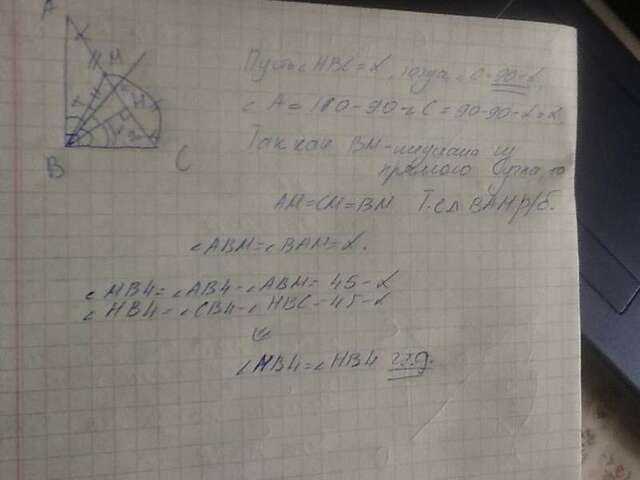 A
M
H
B
C
Пусть ∠HBC = α, тогда ∠C = 90-α,
∠A = 180-90-∠C = 90-90-α = α.
Так как BM - медиана из
прямого угла, то
AM = CM = BM Т.е Δ BAM р/б.
∠ABM = ∠BAM = α.
∠MB4 = ∠AB4 - ∠ABM = 45-α
∠HB4 = ∠CB4 - ∠HBC = 45-α
⇓
∠MB4 = ∠HB4 ч.т.д.